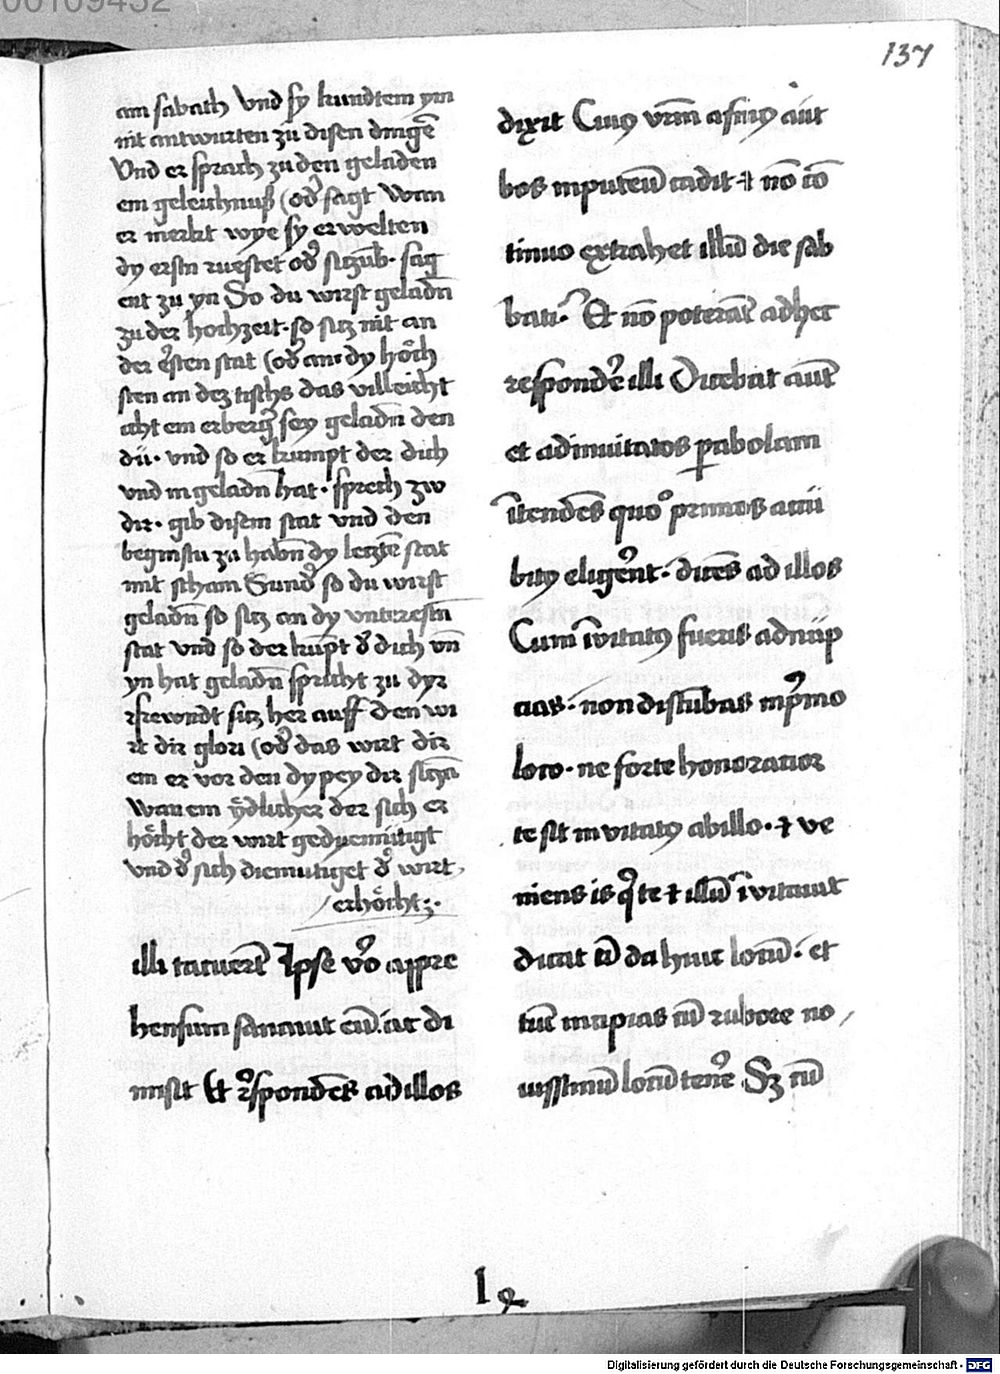 00109432
137
am sabath vnd sy kundtem ym
nit antwurten zu disen dingē
Vnd er sprach zu den geladen
em geleichnuß (od̓ sagt Wan
er merkt wye sy erwelten
dy erstn ruestet od̓ sitzūb. sag
ent zu yn So du wirst geladn̄
zu der hochzeit. so sitz nit an
der ersten stat (od̓ an dy höch
sten an dez tischs das villeicht
icht em erberg̓ sey geladn̄ den
dū. vnd so er kumpt der dich
vnd in geladn̄ hat. sprech zw
dir. gib disem stat vnd den
beginstu zu habn̄ dy letztē stat
mit scham Sund̓ so du wirst
geladn̄ so sitz an dy vnterestn̄
stat vnd so der kūpt d̓ dich vn̄
yn hat geladn̄ spricht zu dyr
frewndt sitz her auff den wi
rt dir glori (od̓ das wirt dir
em er vor den dy pey dir sitzn̄
Wan em ydlicher der sich er
höcht der wirt gedyemütigt
vnd d̓ sich diemutiget d̓ wirt
erhöcht:.
illi tacuerūt Ipse v̓o appre
hensum sanauit eū. ac di
misit Et r̓spondēs ad illos
dixit Cuiꝯ vr̄m asinꝯ aut
bos in puteū cadit ⁊ nō cō
tinuo extrahet illū die sab
bati. Et nō poterāt ad hec
respond̓e illi Dicebat aut̄
et ad inuitatos ꝑabolam
ītendēs quo̊ primos accu
bitꝯ elig̓ent. dicēs ad illos
Cum īuitatꝯ fueris ad nup
cias. non discūbas in p̓mo
loco. ne forte honoratior
te sit inuitatꝯ ab illo. ⁊ ve
niens is q̓ te ⁊ illū īuitauit
dicat t̄ da huic locū. et
tūc incipias cū rubore no
uissimū locū ten̓e Sꝫ cū
l 2
Digitalisierung gefördert durch die Deutsche Forschungsgemeinschaft - DFG